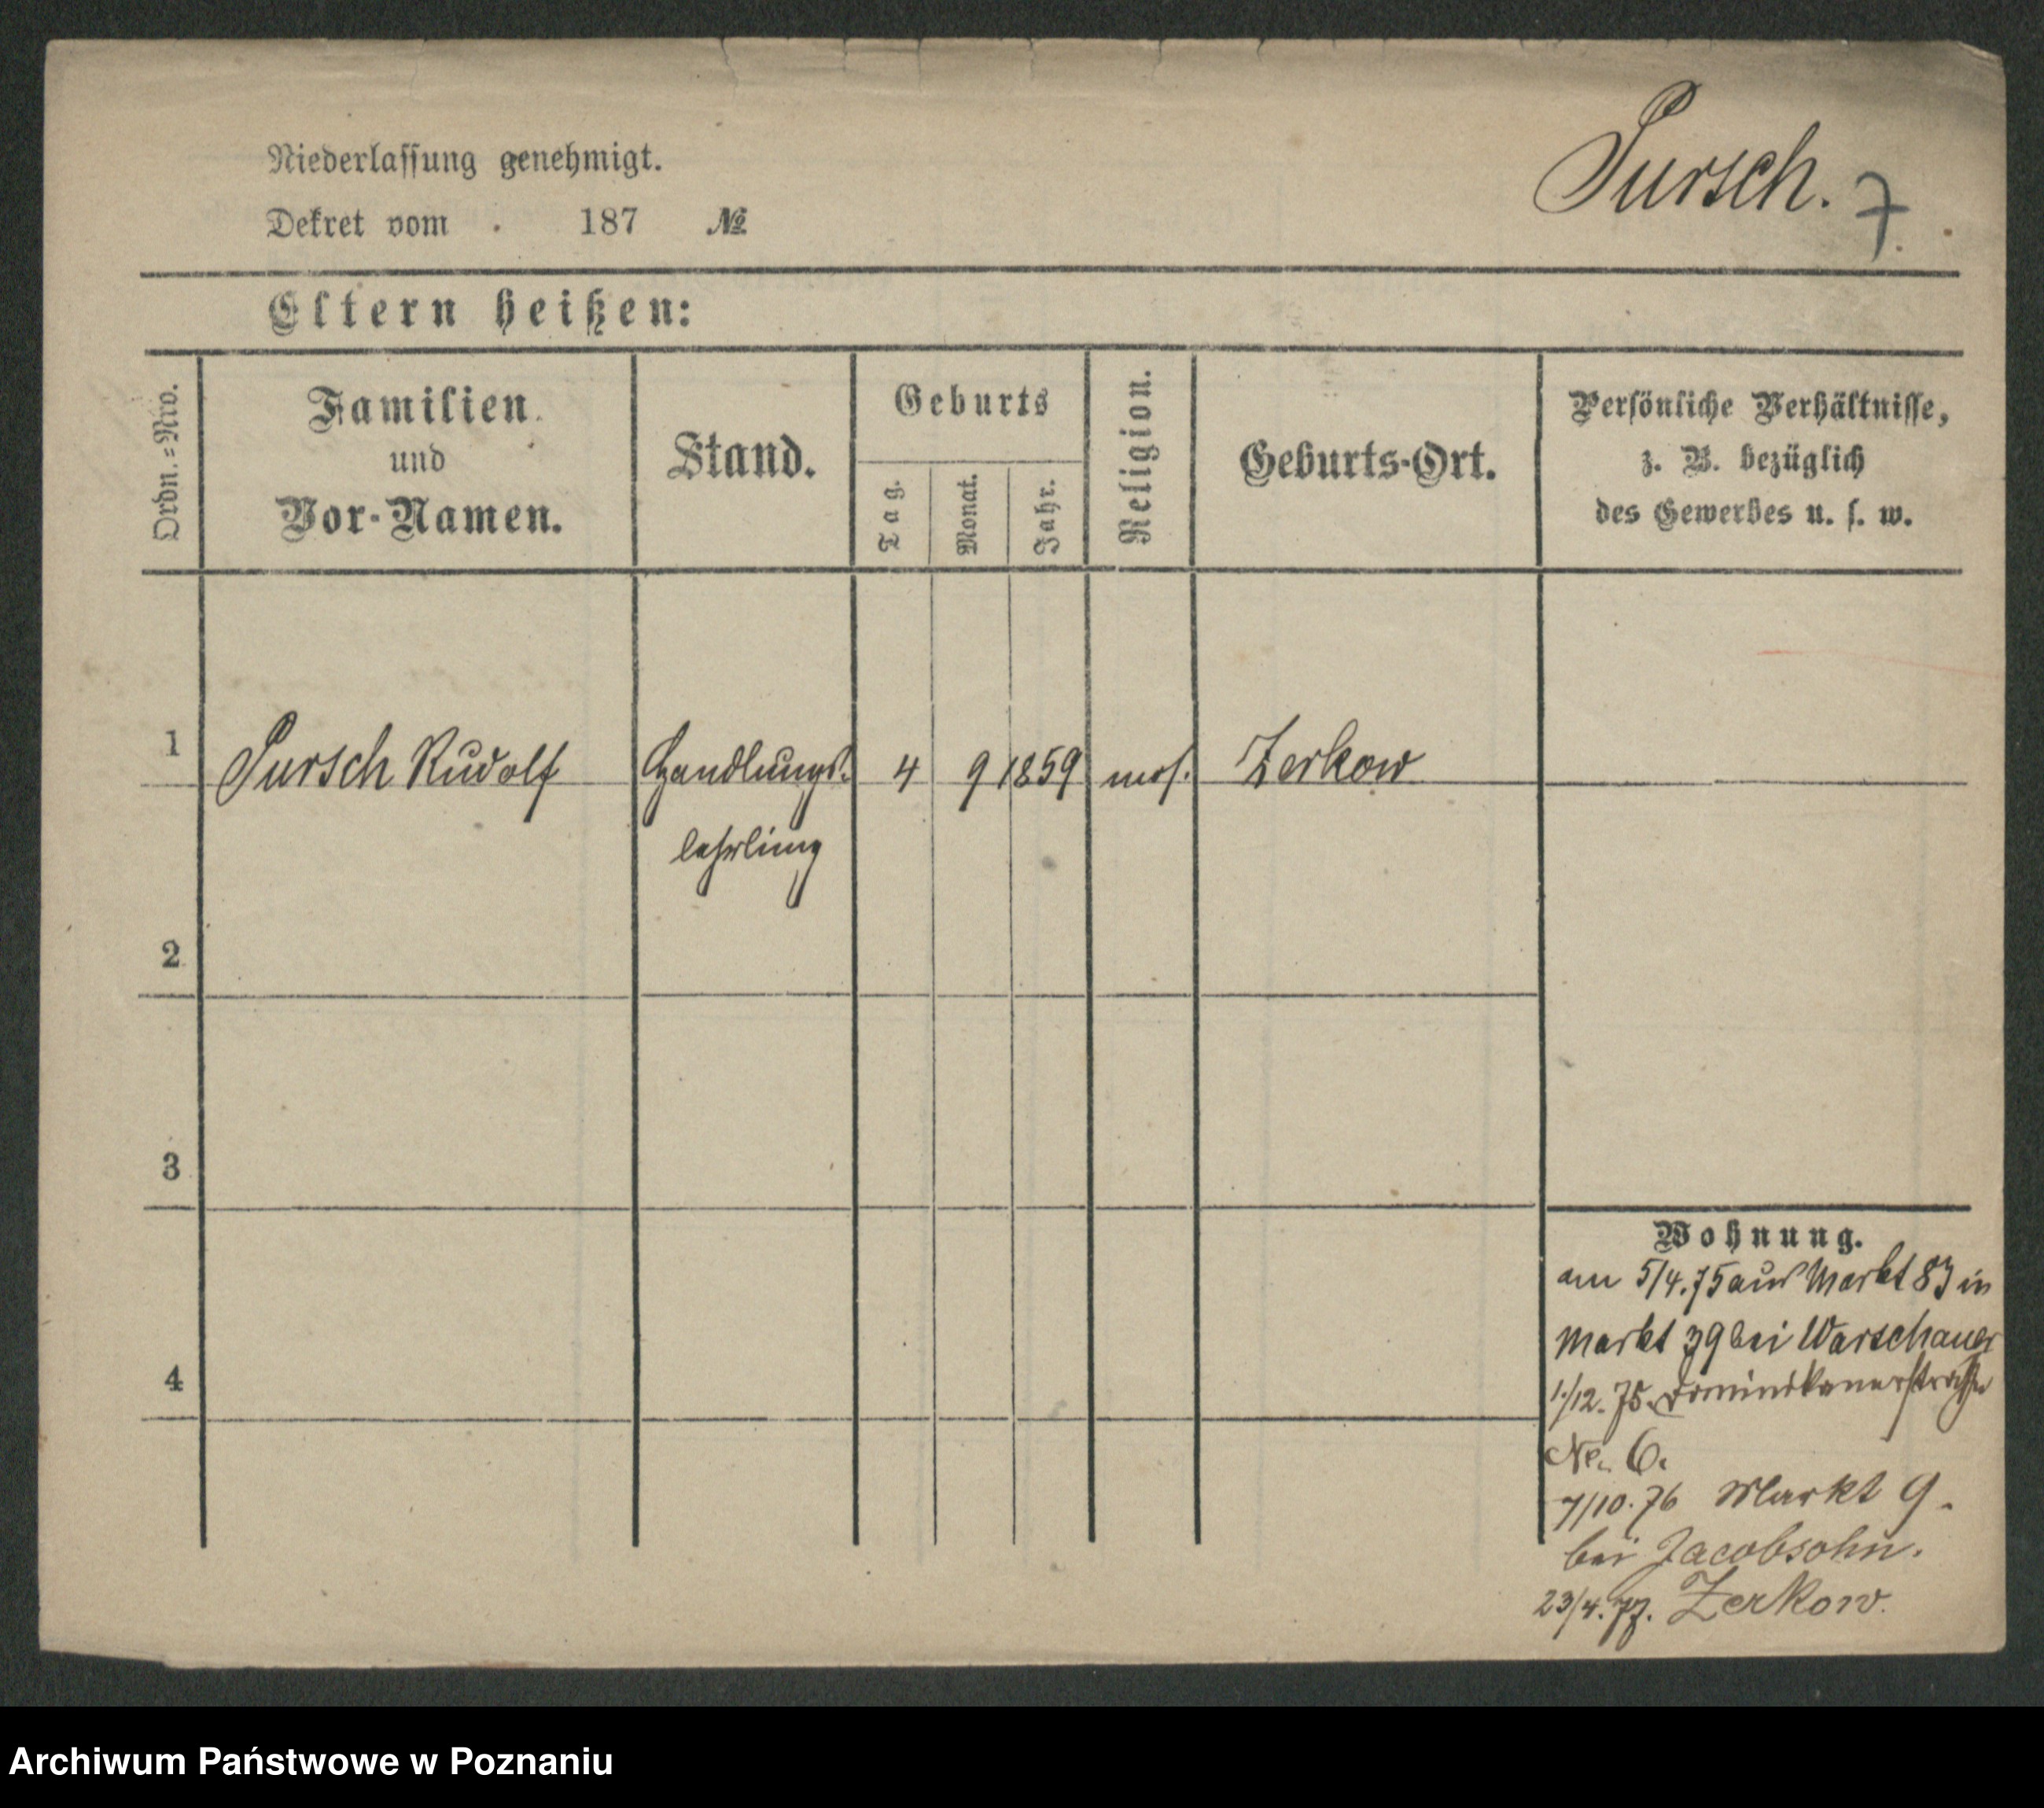 Niederlassung genehmigt.
Dekret vom . 187 №
Pursch. 7.
Eltern heißen:
Ordn.=Nro.
Familien
und
Vor-Namen.
Stand.
Geburts
Tag.
Monat.
Jahr.
Religion.
Geburts-Ort.
Persönliche Verhältnisse,
z. B. bezüglich
des Gewerbes u. s. w.
1 Pursch Rudolf Handlungs- 4 9 1859 mos. Zerkow
lehrling
2
3
4
Wohnung.
am 5/4.75 aus Markt 83 in
Markt 39 bei Warschauer
1./12. 75. Dominikanerstraße
No. 6.
7/10.76 Markt 9.
bei Jacobsohn.
23/4.77. Zerkow.
Archiwum Państwowe w Poznaniu